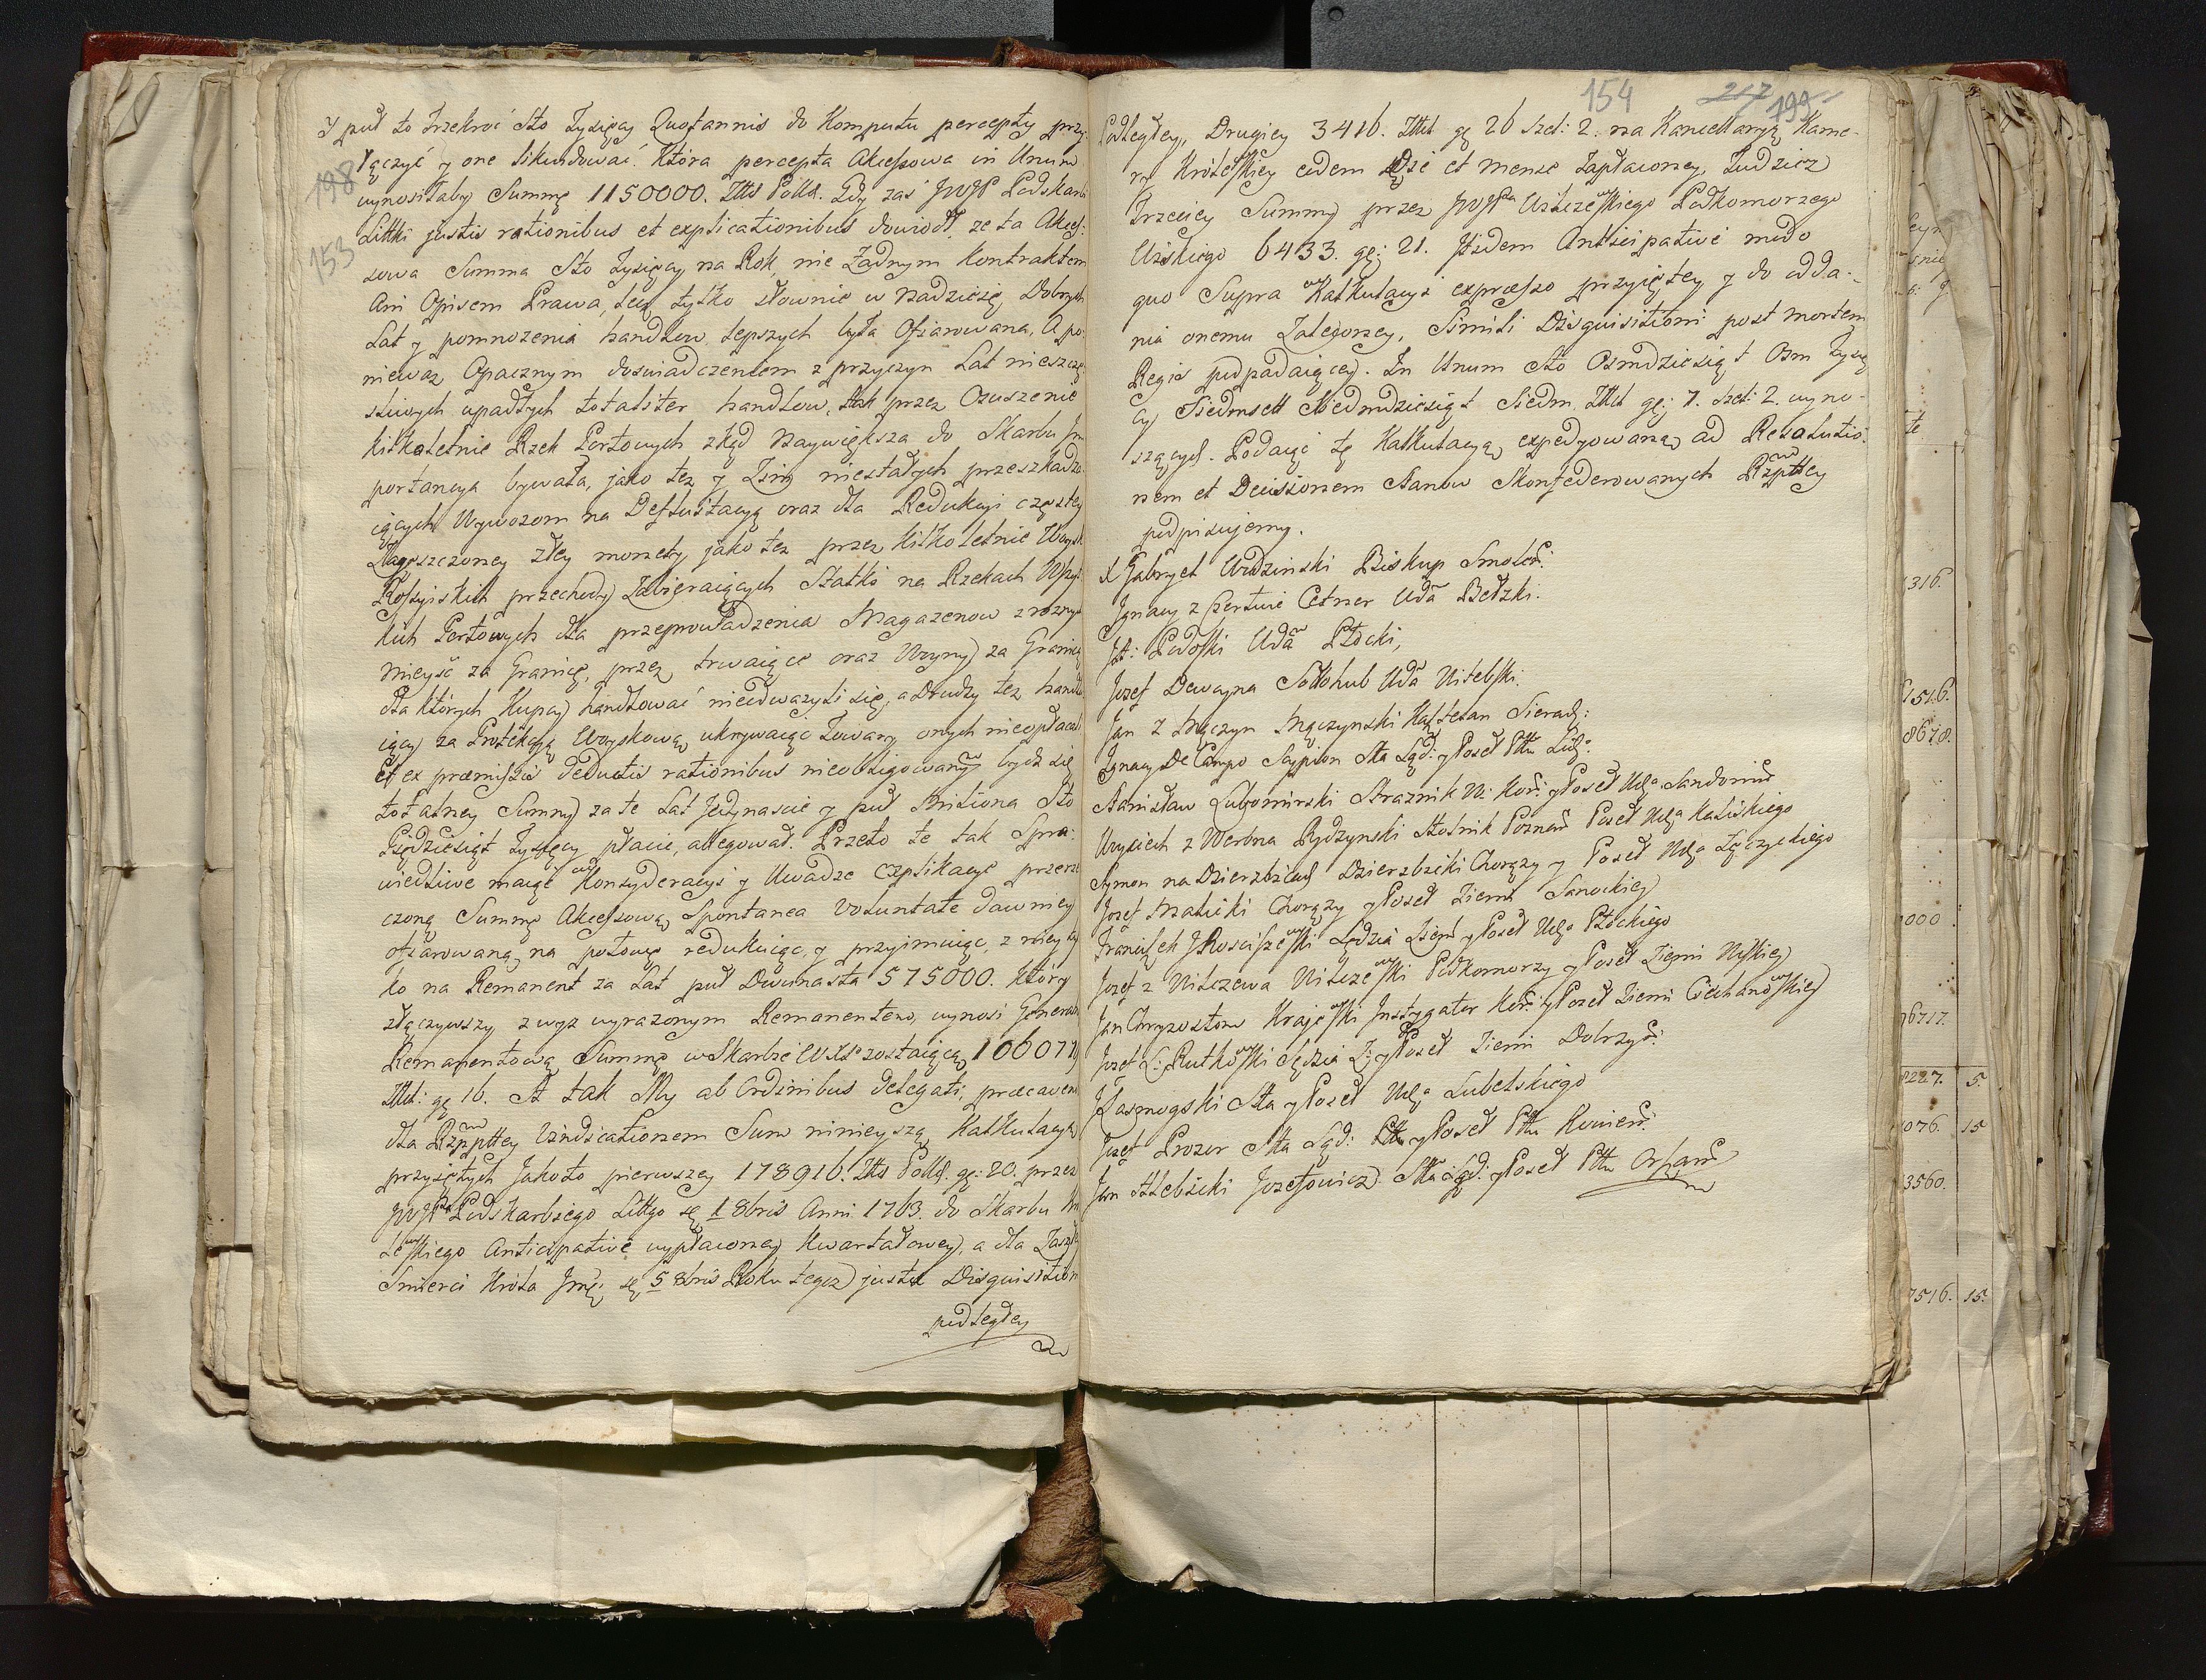 198
153
Y puł to trzekroć Sto Tysięcy Quotannis do Komputu percepty przy-
łączyć y one likwidować. Która percepta Akcessowa in Unum
wynosiłaby Summę 1150000. Złłd Polld. Gdy zaś JWJP Podskarbi
Littki justis rationibus et explicationibus dowiodł, że ta Akces-
sowa Summa Sto Tysięcy na Rok, nie Żadnym Kontraktem
Ani Opisem Prawa, lecz tylko słownie w Nadzieię Dobrych
Lat y pomnożenia handlow lepszych była Ofiarowana, A po-
niewaz Opacznym doswiadczeniem z przyczyn Lat nieszczę-
śliwych upadłych totaliter handlow, przez Osuszenie
kilkoletnie Rzek Portowych zkąd Naywiększa do Skarbu Jm
portancya bywała, jako tez y Zim niestałych przeszkadza-
iących Wywozom na Defluitacyą oraz dla Redukcyi częstey
Zagęszczoney złey monety, jako tez przez kilkoletnie Woysk
Rossyiskich przechody Zabieraiących Statki na Rzekach Wszyst-
kich Portowych dla przeprowadzenia Magazenow z roznych
mieysc za Granicę, przez trwaiące oraz Woyny za Granicą
dla których Kupcy handlować nieodwazyli się, a Drudzy tez handlu-
iący za Protekcyą Woyskową ukrywaiąc Towary onych nieopłacali
et ex præmissis deductis rationibus nieobligowany bydz się
totalney Summy za te Lat Jedynascie y puł Miliona Sto
Pięćdziesiąt Tysięcy płacić, allegował. Przeto te tak Spra-
wiedliwe maiąc w Konsyderacyi y Uwadze explikacye przerze-
czoną Summę Akcessową Spontanea Voluntate dawniey
ofiarowaną, na połowę redukuiąc, y przyimuiąc, z niey tyl-
ko na Remanent za Lat puł Dwunasta 575000. Który
złączywszy z wyz wyrazonym Remanentem, wynosi Generalną
Remanentową Summę w Skarbie WXLo zostaiącą 166071
Złłd: gę 16. A tak My ab Ordinibus Delegati, præcavendo
dla Rzpptey Vindicationem Sum ninieyszą Kalkulacyą
przyiętych Jakoto pierwszey 178916. Złłd Polld. gę: 20. przez
JWJPa Podskarbiego Littgo sę 1 8bris Anni 1763. do Skarbu Kró-
lewskiego Anticipative wypłaconey Kwartałowey, a dla Zaszłey
Smierci Króla Jmci sę 5 8bris Roku tegoz justæ Disquisitioni
podległey
154
217
199
Podległey, Drugiey 3416. Złłd gę 26 Szel: 2. na Kancellaryą Kame-
ry Królewskiey eadem Die et Mense Zapłaconey, Tudzież
Trzeciey Summy przez JWJPa Wilczewskiego Podkomorzego
Wizkiego 6433. gę: 21. Itidem Anticipative modo
quo Supra w Kalkulacyi expresso przyiętey y do odda-
nia onemu Zaległoney, Simili Disquisitioni post mortem
Regis podpadaiącey. In Unum Sto Osmdziesiąt Osm Tysię-
cy Siedmset Siedmdziesiąt Siedm Złłd gę: 7. Szel: 2. wyno-
szących. Podaiąc tę Kalkulacyą expedyowaną ad Resolutio-
nem et Decisionem Stanow Skonfederowanych Rzpttey
podpisujemy.
X Gabryel Wodzinski Biskup Smoleń:
Ignacy z Czertwic Cetner Wda Bełzki.
Jzł: Podoski Wda Płocki,
Jozef Dewayna Sołłohub Wda Witebski.
Jan z Męczyn Męczynski Kasztelan Sieradz:
Ignacy De Campo Scypion Sta Ląd: y Poseł Pttu Lidz:
Stanisław Lubomirski Straznik W: Kor: y Poseł Wdztwa Sandomir
Woyciech z Werbna Rydzynski Stolnik Poznań Poseł Wdztwa Kaliskiego
Symon na Dzierzbicach Dzierzbicki Chorązy y Poseł Wdztwa Łęczyckiego
Jozef Malicki Chorązy y Poseł Ziemi Sanockiey
Franciszek J Rosciszewski Sędzia Ziem y Poseł Wdztwa Płockiego
Jozef z Wilczewa Wilczewski Podkomorzy y Poseł Ziemi Wiskiey
Jan Chryzostom Krajewski Instygator Kor: y Poseł Ziemi Ciechanowskiey
Jozef L: Rutkowski Sędzia Z: y Poseł Ziemi Dobrzyń:
Sta y Poseł Wdztwa Lubelskiego
Jozef Prozor Sta Sąd: y Poseł Pttu Kowień:
Jan Jozefowicz Sta Sąd: y Poseł Pttu Orszań
316.
1516.
8678.
000
6717.
8227. 5.
076. 15
3560.
7516. 15.